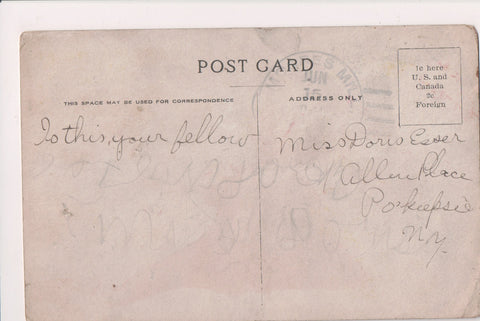 POST CARD
THIS SPACE MAY BE USED FOR CORRESPONDENCE
ADDRESS ONLY
1c here
U. S. and
Canada
2c
Foreign
JUN
16
Is this, your fellow
Miss Doris Esser
Allen Place
Pokeepsie
N.Y.